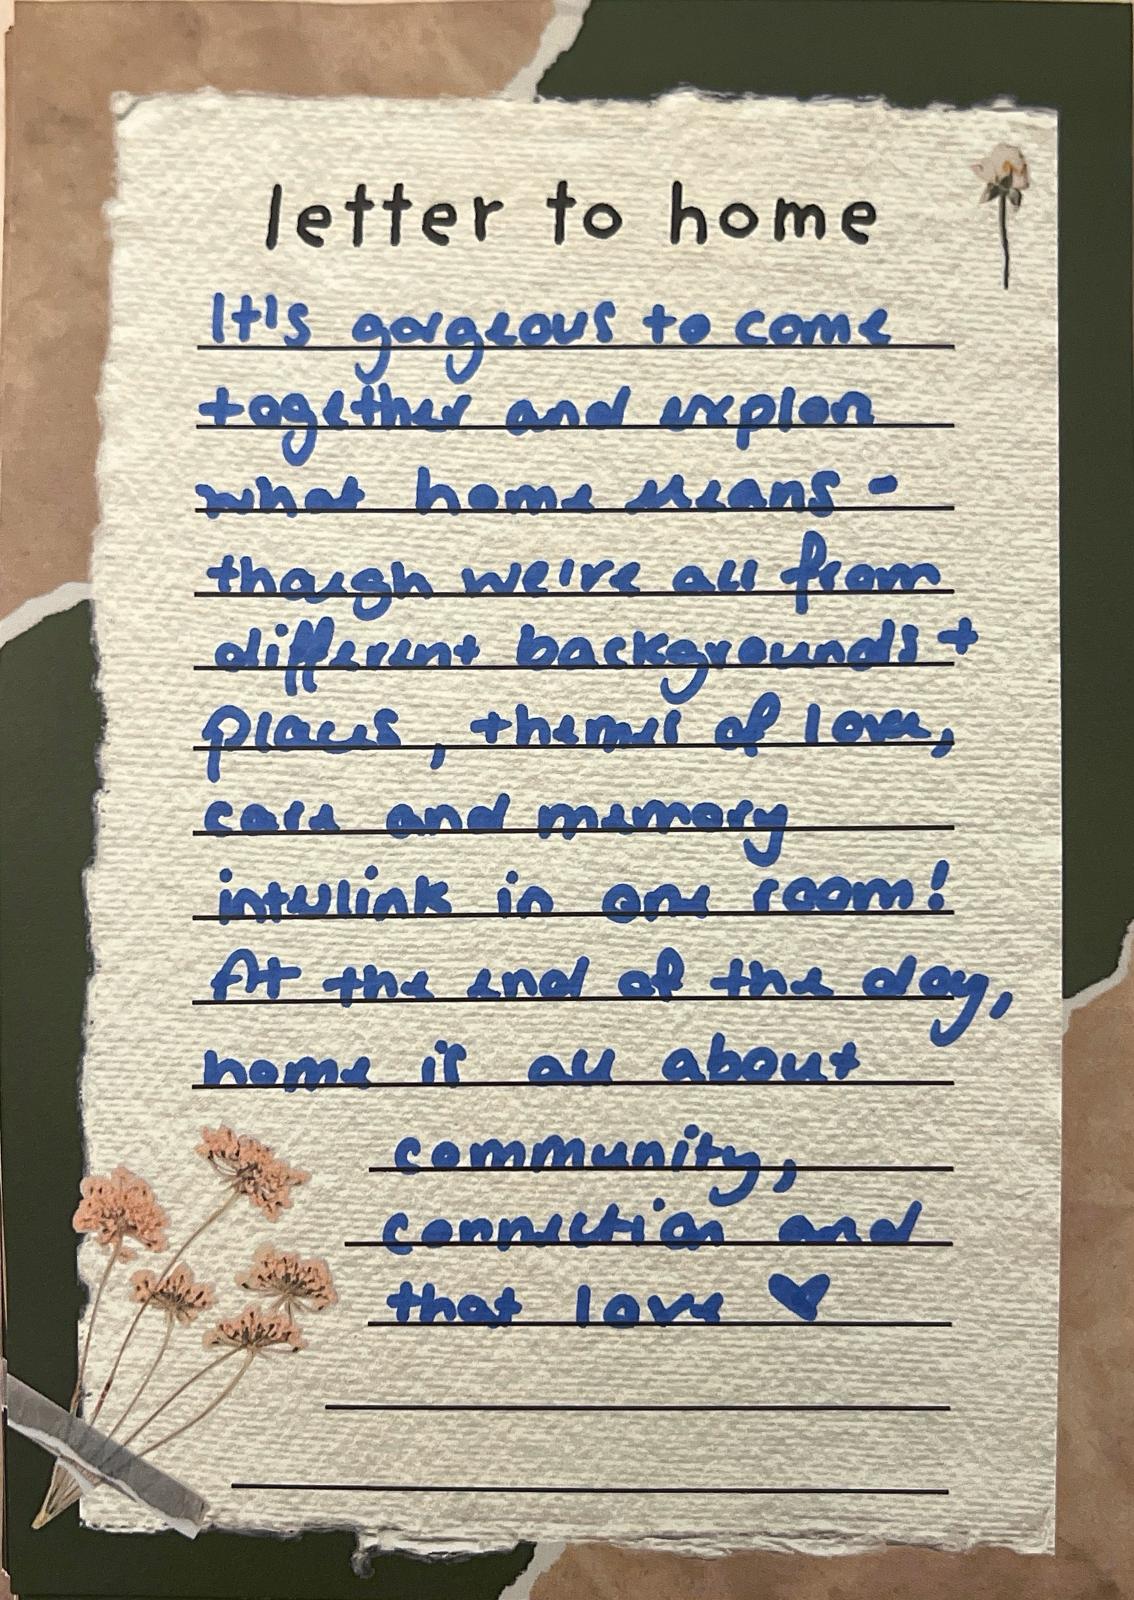 letter to home
It's gorgeous to come
together and explore
what home means -
though we're all from
different backgrounds +
places, themes of love,
care and memory
interlink in one room!
At the end of the day,
home is all about
community,
connection and
that love ♥